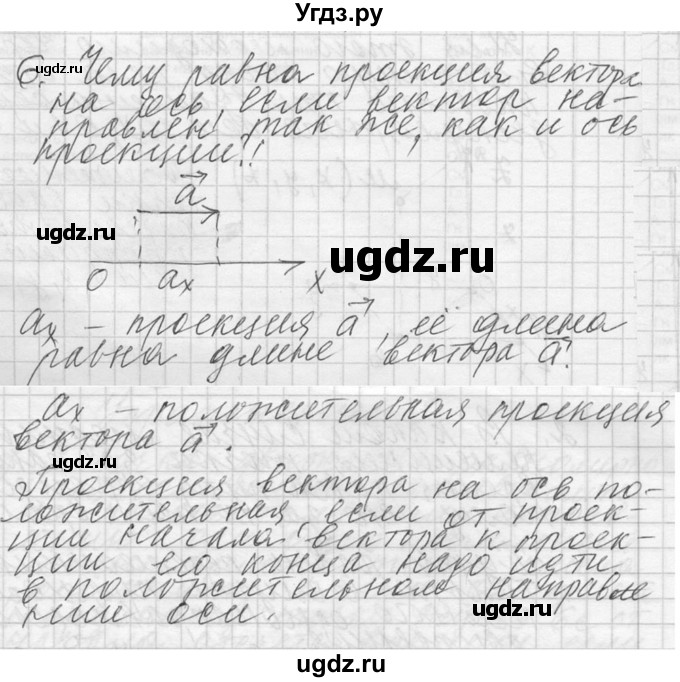 Угдз.ру
6. Чему равна проекция вектора
на ось, если вектор на-
правлен так же, как и ось
проекции?!
a
ugdz.ru
ugdz.ru
0 aₓ x
aₓ – проекция a, её длина
равна длине вектора a.
aₓ – положительная проекция
вектора a.
ugdz.ru
Проекция вектора на ось по-
ложительная, если от проек-
ции начала вектора к проек-
ции его конца надо идти
в положительном направле
нии оси.
ugdz.ru
ugdz.ru